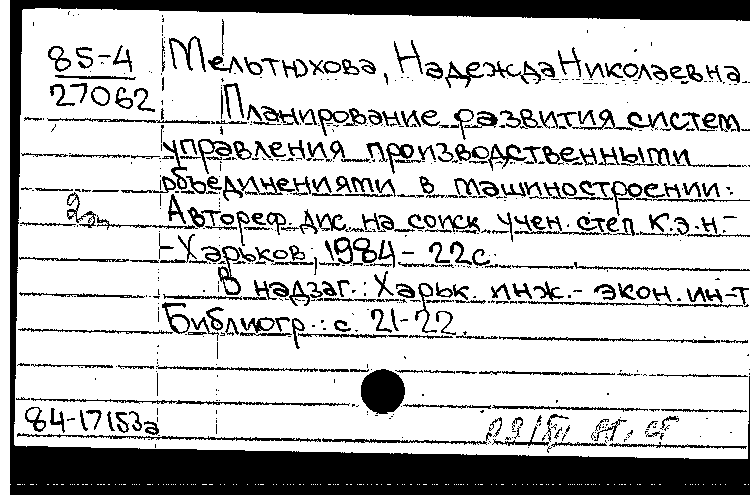 85-4 Мельтюхова, Надежда Николаевна
27062 Планирование развития систем
управления производственными
объединениями в машиностроении:
Автореф. дис на соиск учен. степ к.э.н.-
-Харьков, 1984 - 22с.
В надзаг.: Харьк. инж.- экон. ин-т
Библиогр.: с. 21-22.
84-17153а